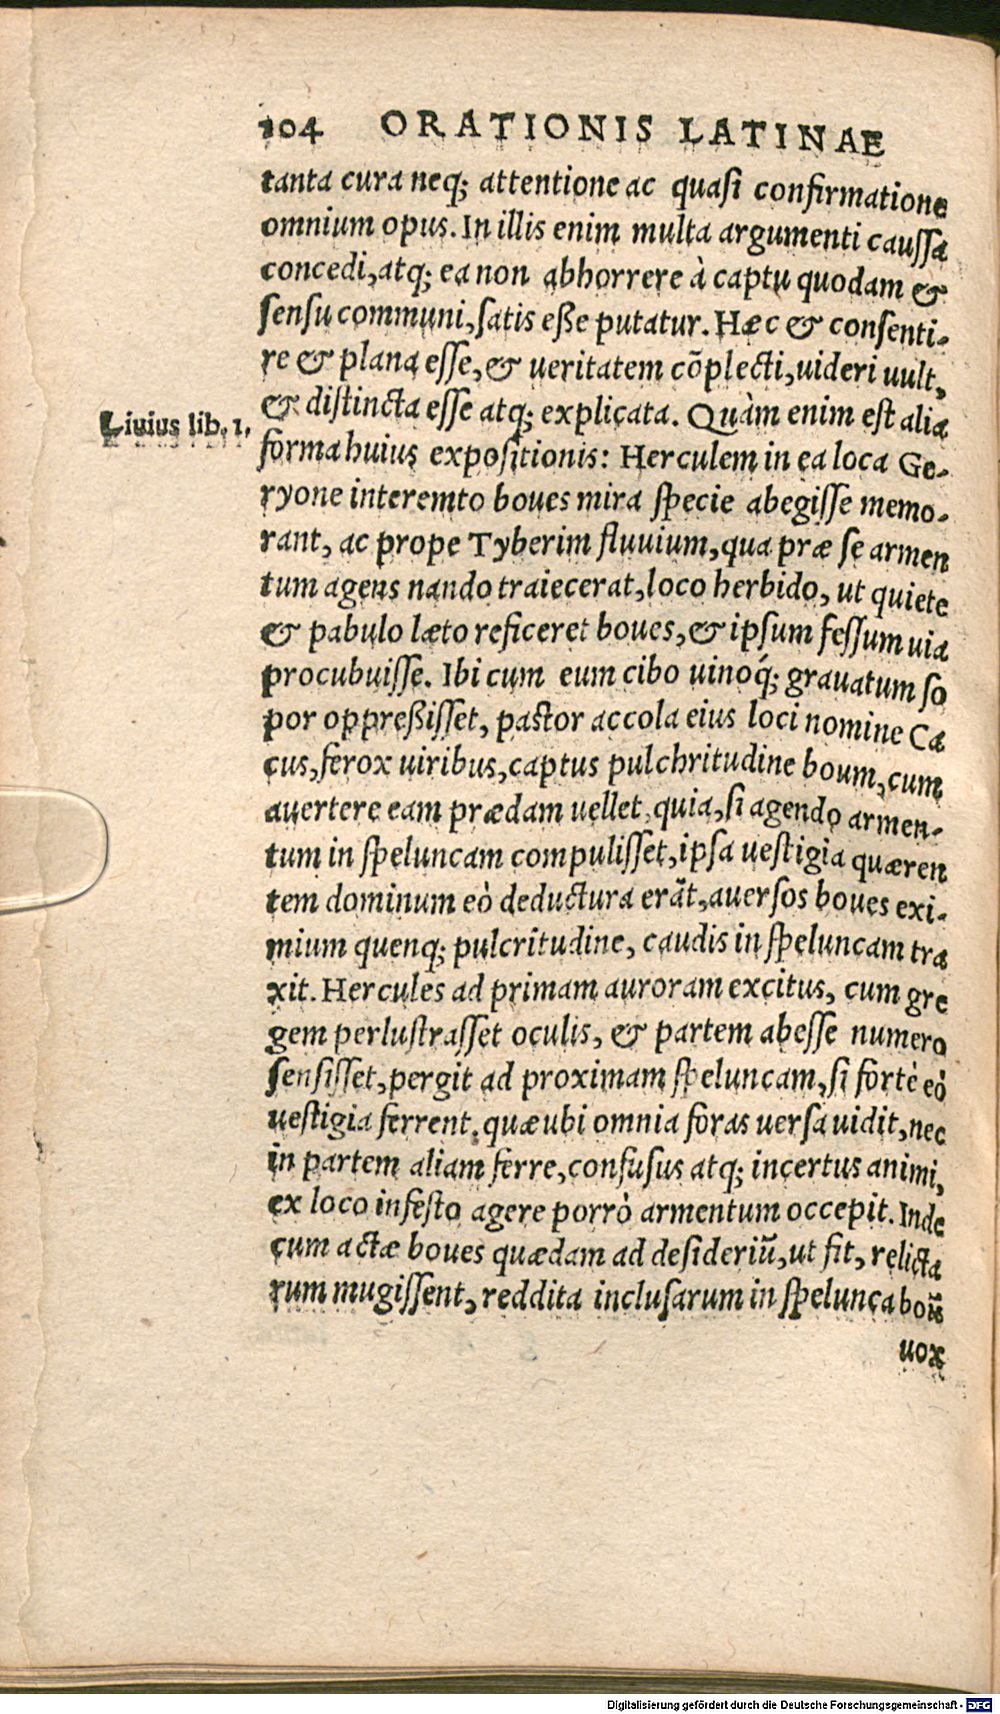 104 ORATIONIS LATINAE
tanta cura neq; attentione ac quasi confirmatione
omnium opus. In illis enim multa argumenti caussa
concedi, atq; ea non abhorrere à captu quodam &
sensu communi, satis eße putatur. Hæc & consenti-
re & plana esse, & ueritatem cõplecti, uideri uult,
& distincta esse atq; explicata. Quàm enim est alia
Liuius lib. 1.
forma huius expositionis: Herculem in ea loca Ge-
ryone interemto boues mira specie abegisse memo-
rant, ac prope Tyberim fluuium, qua præ se armen
tum agens nando traiecerat, loco herbido, ut quiete
& pabulo læto reficeret boues, & ipsum fessum uia
procubuisse. Ibi cum eum cibo uinoq́; grauatum so
por oppreßisset, pastor accola eius loci nomine Ca
cus, ferox uiribus, captus pulchritudine boum, cum
auertere eam prædam uellet, quia, si agendo armen-
tum in speluncam compulisset, ipsa uestigia quæren
tem dominum eò deductura erãt, auersos boues exi-
mium quenq; pulcritudine, caudis in speluncam tra
xit. Hercules ad primam auroram excitus, cum gre
gem perlustrasset oculis, & partem abesse numero
sensisset, pergit ad proximam speluncam, si fortè eò
uestigia ferrent. quæ ubi omnia foras uersa uidit, nec
in partem aliam ferre, confusus atq; incertus animi,
ex loco infesto agere porrò armentum occepit. Inde
cum actæ boues quædam ad desideriũ, ut fit, relicta
rum mugissent, reddita inclusarum in spelunca boũ
uox
Digitalisierung gefördert durch die Deutsche Forschungsgemeinschaft - DFG